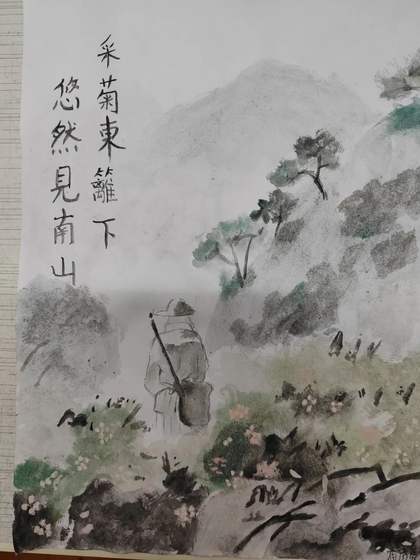 采菊東籬下
悠然見南山